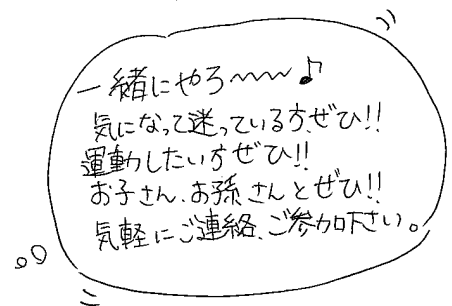 一緒にやろ〜〜〜♪
気になって迷っている方、ぜひ!!
運動したい方ぜひ!!
お子さん、お孫さんとぜひ!!
気軽にご連絡、ご参加下さい。